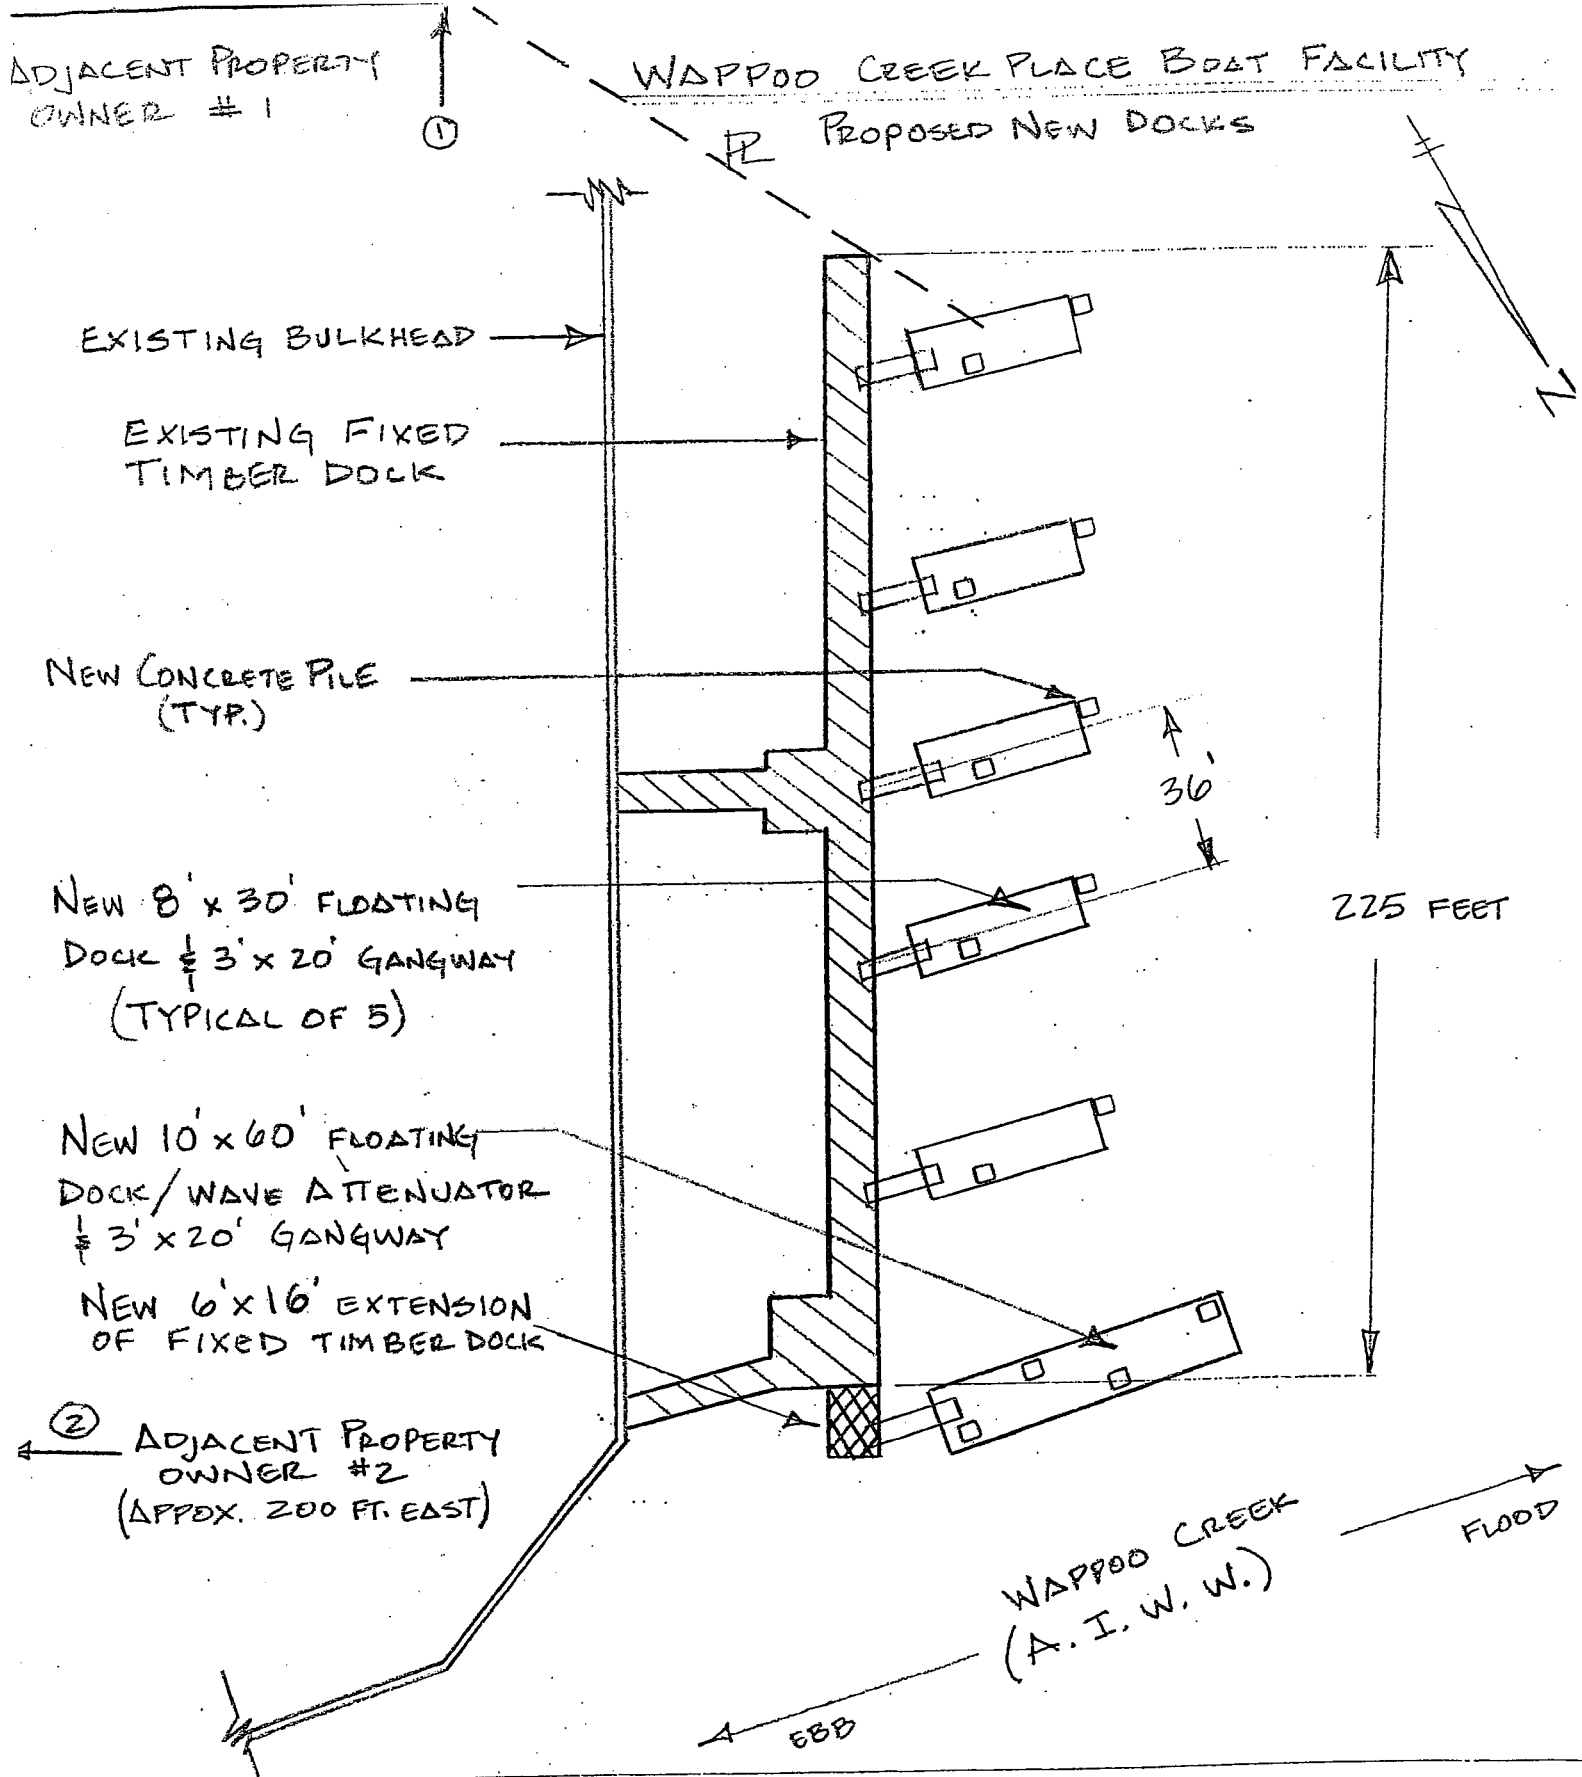 ADJACENT PROPERTY
OWNER # 1
①
WAPPOO CREEK PLACE BOAT FACILITY
PROPOSED NEW DOCKS
PL
N
EXISTING BULKHEAD
EXISTING FIXED
TIMBER DOCK
NEW CONCRETE PILE
(TYP.)
36'
NEW 8' x 30' FLOATING
DOCK & 3' x 20' GANGWAY
(TYPICAL OF 5)
225 FEET
NEW 10' x 60' FLOATING
DOCK/WAVE ATTENUATOR
& 3' x 20' GANGWAY
NEW 6' x 16' EXTENSION
OF FIXED TIMBER DOCK
②
ADJACENT PROPERTY
OWNER #2
(APPOX. 200 FT. EAST)
WAPPOO CREEK
(A. I. W. W.)
FLOOD
EBB